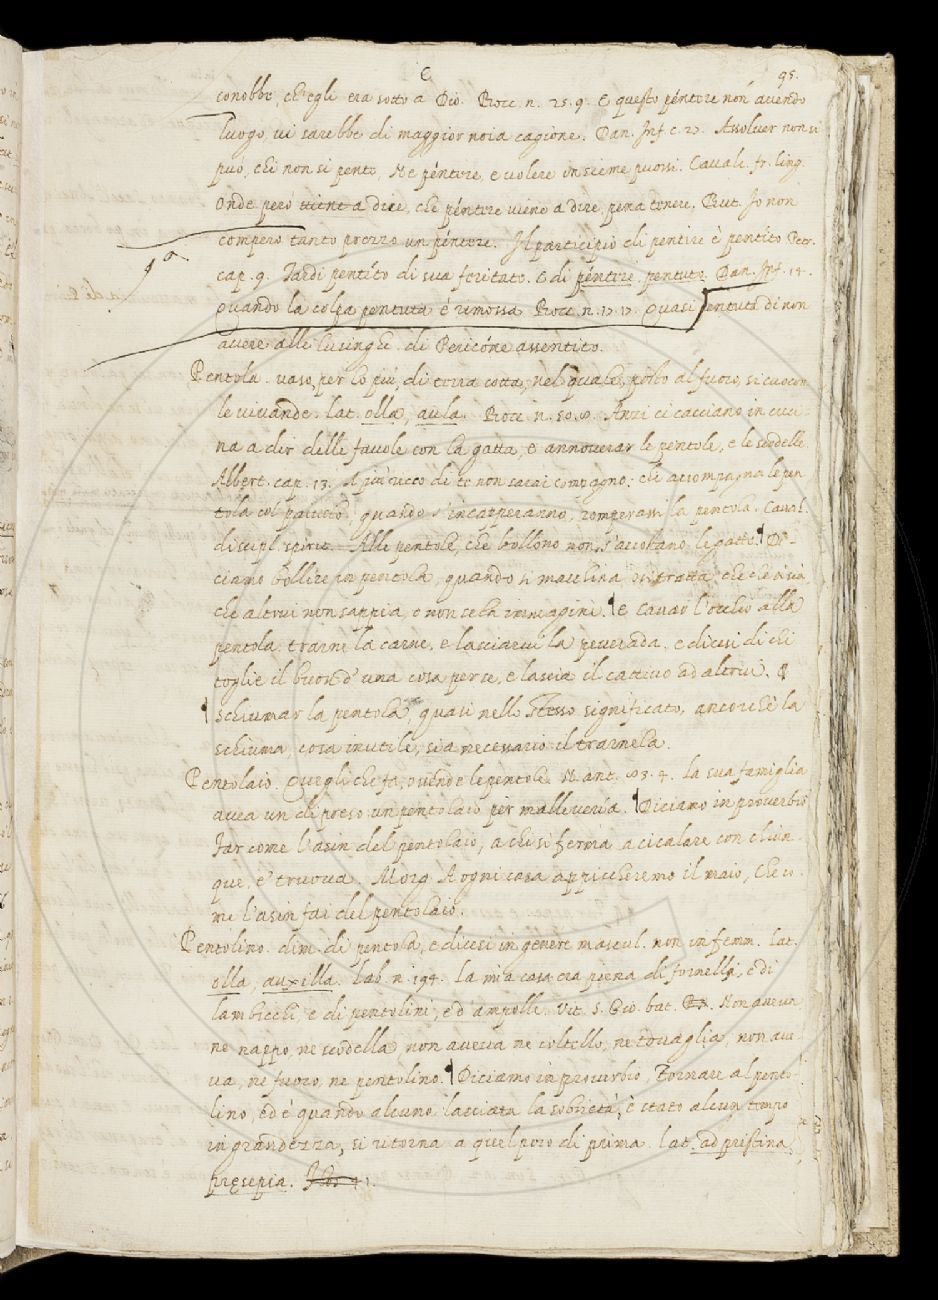 E
95.
conobbe, ch'egli era sotto a Dio. Bocc. n. 25. 9. E questo péntere non avendo
luogo, vi sarebbe di maggior noia cagione. Dan. Inf. c. 27. Assolver non si
può, chi non si pente, Ne péntere, e volere insieme puossi. Cavalc. fr. ling.
Onde però viene a dire, che péntere viene a dire, pena tenere. But. Io non
compero tanto prezzo un péntere. Il participio di pentire è pentíto Petr.
cap. 9. Tardi pentíto di sua feritate. E di péntere, pentuto. Dan. Inf. 14.
1ª
Quando la colpa pentuta è rimossa Bocc. n. 17. 17. Quasi pentuta di non
avere alle lusinghe di Pericóne assentito.
Pentola. vaso, per lo più, di terra cotta, nel quale, posto al fuoco, si cuocon
le vivande. lat. olla, aula. Bocc. n. 50. 8. Anzi ci cacciano in cuci-
na a dir delle favole con la gatta, e annoverar le pentole, e le scodelle.
Albert. cap. 13. A più ricco di te non sarai compagno: che accompagna la pen
tola col paiuolo, quando s'incapperanno, romperassi la pentola. Caval.
discipl. spirit. Alle pentole, che bollono non s'accostano le gatte. Di-
ciamo Bollire in pentola, quando si macchina, o si tratta, che che sia
che altrui non sappia, e non se la immagini. E Cavar l'occhio alla
pentola: trarne la carne, e lasciarvi la peverada, e dicesi di chi
toglie il buon d'una cosa per se, e lascia il cattivo ad altrui.
Schiumar la pentola, quasi nello stesso significato, ancorchè la
schiuma, cosa inutile, sia necessario il trarnela.
Pentolaio. Quegli che fa, o vende le pentole. N. ant. 83. 4. La sua famiglia
avea un dì preso un pentolaio per malleveria. Diciamo in proverbio
Far come l'asin del pentolaio, a chi si ferma a cicalare con chiun-
que, e' truova. Morg. A ogni casa appiccheremo il maio, Che co-
me l'asin fai del pentolaio.
Pentolino. dim. di pentola, e dicesi in genere mascul. non in femm. Lat.
olla, auxilla. Lab. n. 194. La mia casa era piena di fornelli, e di
lambicchi, e di pentolini, e d'ampolle. Vit. S. Gio. bat. Non aveva
ne nappo, ne scodella, non aveva ne coltello, ne tovaglia, non ave-
va, ne fuoco, ne pentolino. Diciamo in proverbio, Tornare al pento-
lino, ed è quando alcuno, lasciata la sobrietà, è stato alcun tempo
in grandezza, si ritorna a quel poco di prima. Lat. ad pristina
præsepia.